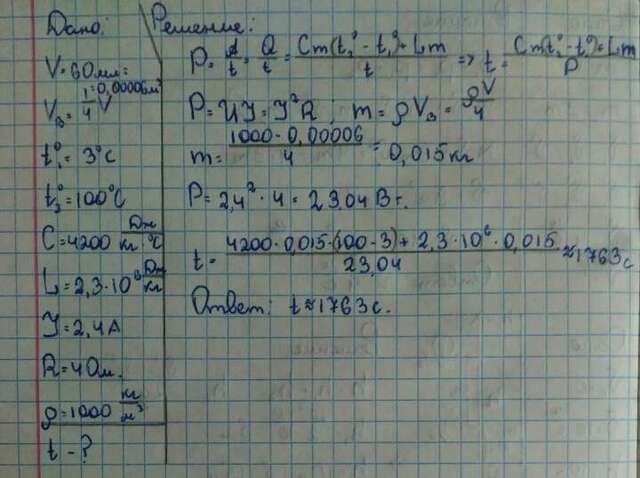 Дано:
V = 60 мл =
= 0,00006 м³
Vв = 1/4 V
t₁° = 3°C
t₂° = 100°C
C = 4200 Дж/кг·°C
L = 2,3·10⁶ Дж/кг
I = 2,4 А
R = 4 Ом.
ρ = 1000 кг/м³
t - ?
Решение:
P = A/t = Q/t = (Cm(t₂° - t₁°) + Lm)/t => t = (Cm(t₂° - t₁°) + Lm)/P
P = UI = I²R ; m = ρVв = ρV/4
m = (1000 · 0,00006)/4 = 0,015 кг
P = 2,4² · 4 = 23,04 Вт.
t = (4200 · 0,015 · (100 - 3) + 2,3 · 10⁶ · 0,015)/23,04 ≈ 1763 с
Ответ: t ≈ 1763 с.